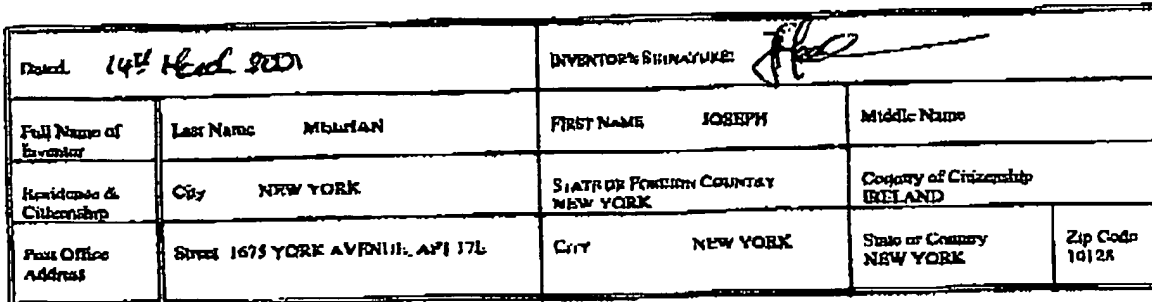 Dated. 14th March 2001 INVENTOR'S SIGNATURE:
Full Name of Inventor Last Name MEEHAN FIRST NAME JOSEPH Middle Name
Residence & Citizenship City NEW YORK STATE OR FOREIGN COUNTRY NEW YORK Country of Citizenship IRELAND
Post Office Address Street 1675 YORK AVENUE, APT 17L City NEW YORK State or Country NEW YORK Zip Code 10128